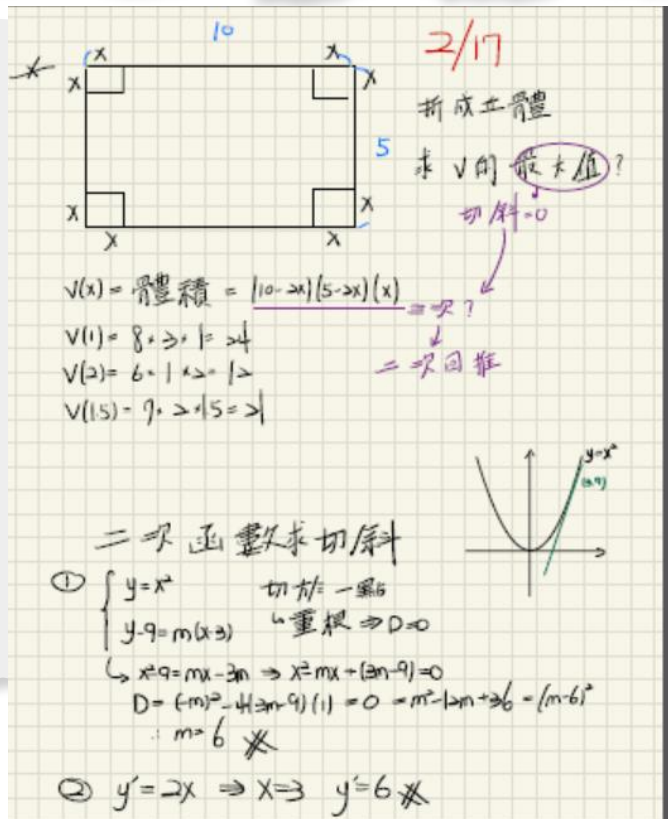 10
2/17
x x
x x
折成立體
5
求 V 的 最大值?
切斜=0
x x
x x
V(x) = 體積 = (10-2x)(5-2x)(x)
三次?
V(1) = 8×3×1 = 24
V(2) = 6×1×2 = 12
二次回推
V(1.5) = 7×2×1.5 = 21
y=x²
(3,9)
二次函數求切斜
① { y=x² 切於一點
y-9=m(x-3) ↳重根 ⇒ D=0
↳ x²-9=mx-3m ⇒ x²-mx+(3m-9)=0
D= (-m)²-4(3m-9)(1) = 0 = m²-12m+36 = (m-6)²
∴ m=6
② y'=2x ⇒ x=3 y'=6